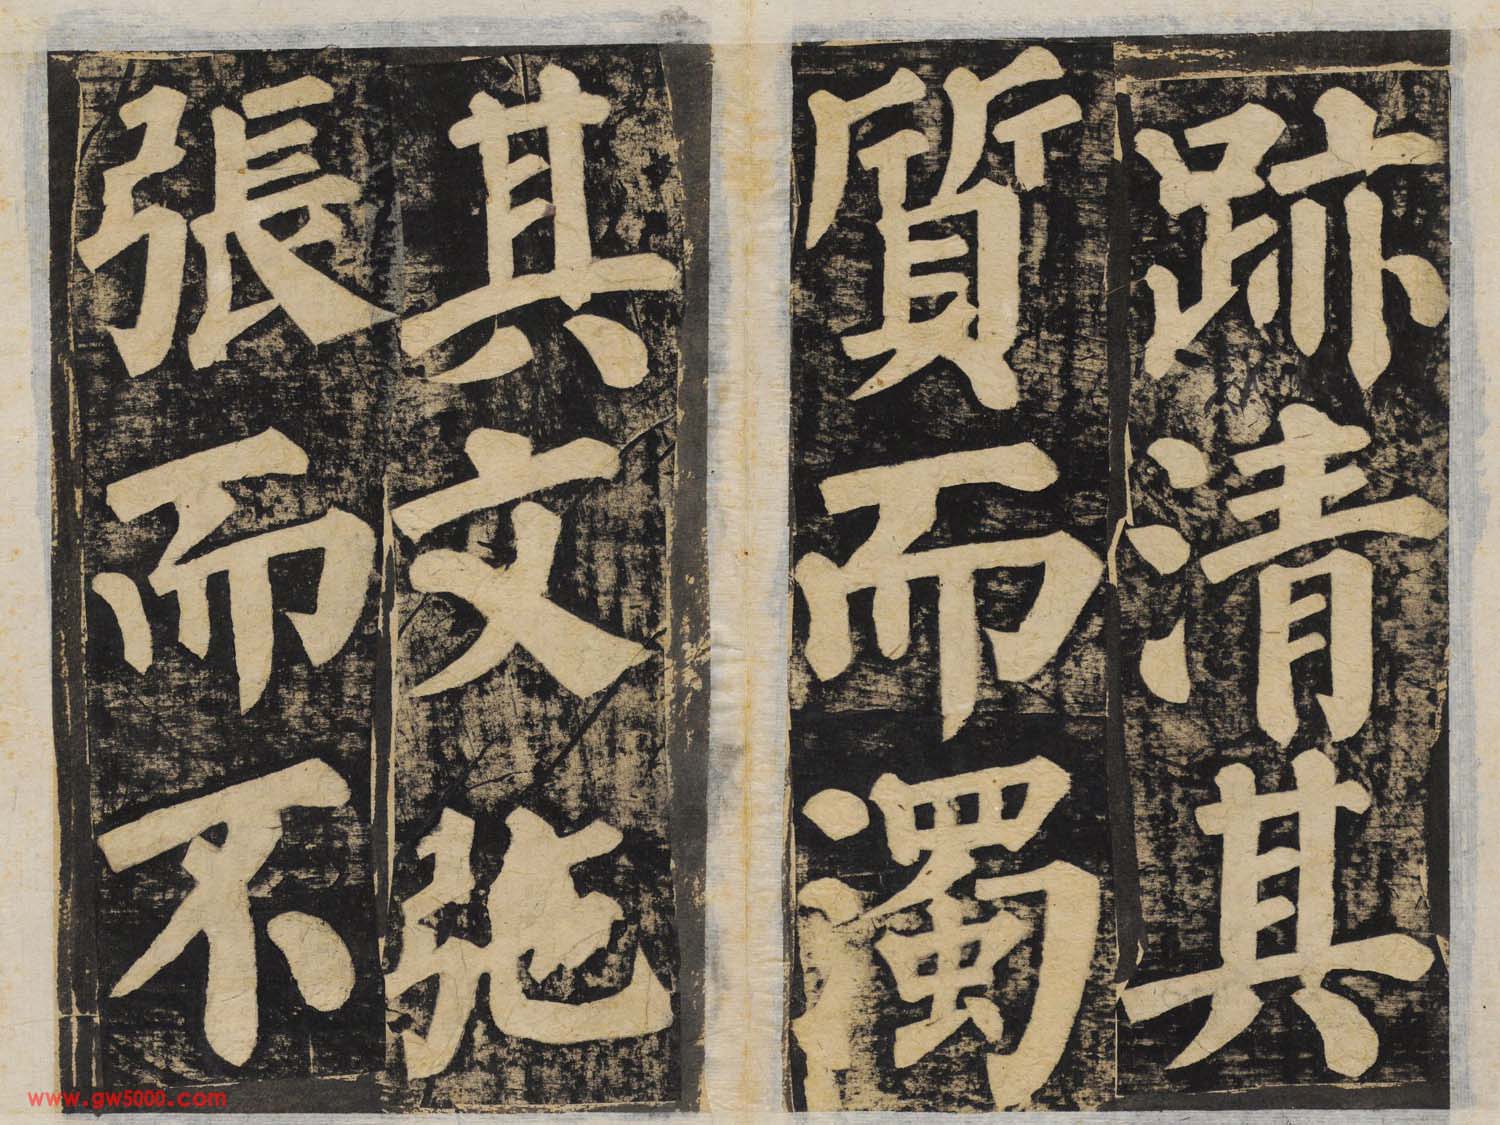 跡清其
質而濁
其文弛
張而不
www.gw5000.com